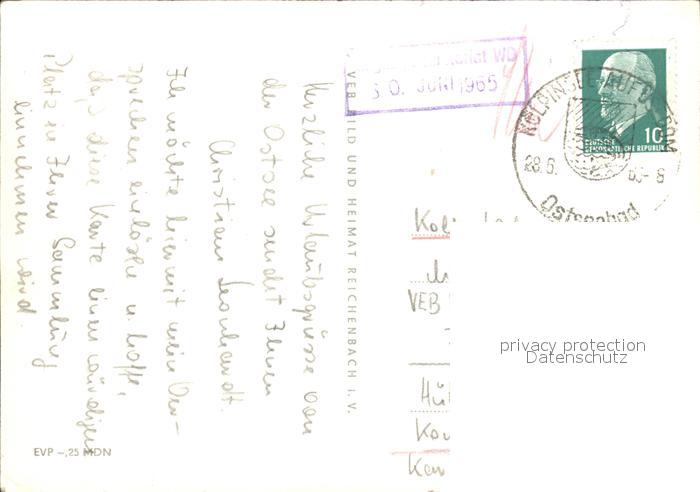 Herzliche Urlaubsgrüsse von
der Ostsee sendet Ihnen
Christian Leonhardt.
Ich möchte hiermit mein Ver-
sprechen einlösen u. hoffe,
daß diese Karte einen würdigen
Platz in Ihrer Sammlung
einnehmen wird.
EVP –,25 MDN
VEB BILD UND HEIMAT REICHENBACH i. V.
WD
30. JUNI 1965
10
DEUTSCHE
DEMOKRATISCHE REPUBLIK
KOELPINSEE AUF USEDOM
28.6. 65-8
Ostseebad
Kol
VEB
privacy protection
Datenschutz